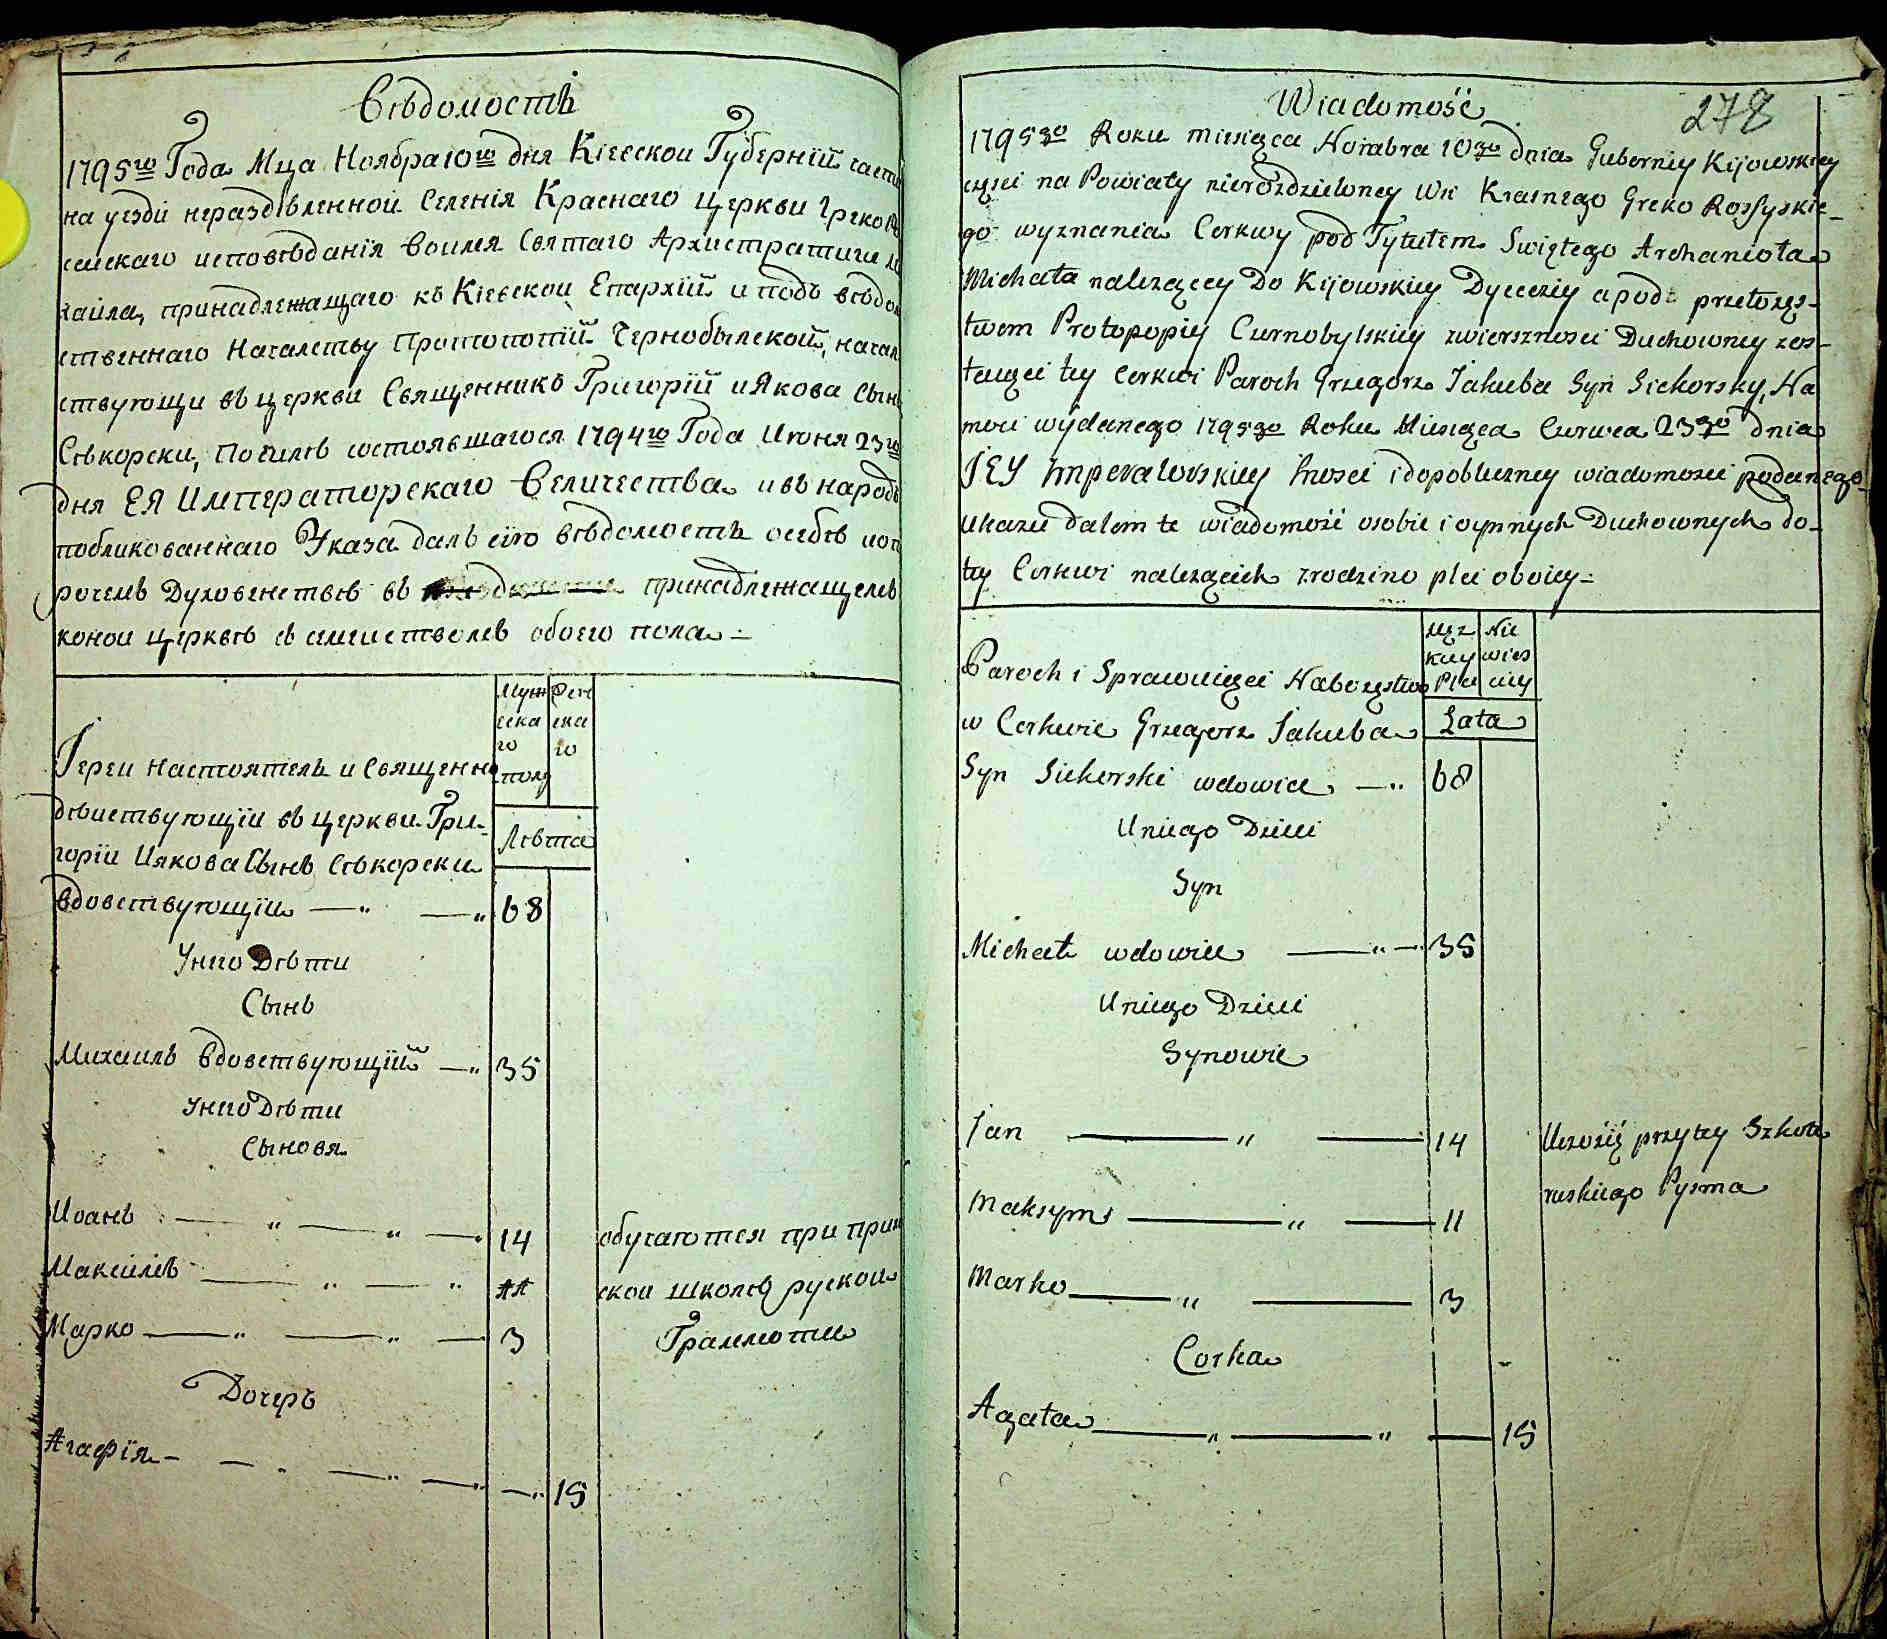 Вѣдомость
1795го Года Мца Ноября 10го дня Кіевскои Губерніи части
на уезди нераздѣвленной Селенія Краснаго Церкви Греко
сейскаго исповѣданія воимя Святаго Архистратига
хаила, принадлежащаго къ Кіевскои Епархіи и подъ вѣдом
ственнаго Началству Протопопіи Чернобылской, начал
ствующи въ церкви Священникъ Григорій Иякова Сынъ
Сѣкорски, По силѣ состоявшагося 1794го Года Июня 23го
дня ЕЯ Императорскаго Величества и въ народъ
побликованнаго Указа далъ сію вѣдомость о себѣ и о п
рочемъ Духовенствѣ въ принадлежащемъ
коной церквѣ съ симиствомъ обоего пола
Муж Жен
еска ска
го го
пола
Лѣта
Іереи Настоятель и Священно
дѣйствующій въ церкви Гри-
горіи Иякова Сынъ Сѣкорски
вдовствующіи — „ — „ 68
У него Дѣти
Сынъ
Михаилъ вдовствующій — „ 35
У него Дѣти
Сыновя
Иоанъ — „ — „ — 14 обучаются при при
Максимъ — „ — „ 11 ской школѣ руской
Марко — „ — „ — 3 Граммоти
Дочерь
Агафія — — „ — „ — „ — „ 15
278
Wiadomość
1795go Roku miesięca Noiabra 10go dnia Guberniy Kijowskiey
częsci na Powiaty nierozdzieloney Wsi Krasnego Greko Rossyskie-
go wyznania Cerkwy pod Tytułem Swiętego Archanioła
Michała nalezącey Do Kijowskiey Dyecezіy a pod przełozęs-
twem Protopopiy Czernobylskiey zwiersznosci Duchowney zos-
taiąci tey cerkwi Paroch Grzegorz Jakuba Syn Siekorsky, Na
moci wydanego 1795go Roku Miesięca Czerwca 23go dnia
JEY Imperatorskiey Mosci i do publiczney wiadomosci podanego
Ukazu dałem te wiadomość osobie i o ynnych Duchownych do-
tey Cerkwi nalezącich z rodzino płci oboiey
Męz Nie
kiey wies
Płci ciey
Lata
Paroch i Sprawuięci Nabozęstwo
w Cerkwie Grzegorz Jakuba
Syn Siekorski wdowiec — „ 68
U niego Dzieci
Syn
Michał wdowiec — „ — 35
U niego Dzieci
Synowie
Jan — „ — 14 Uczosię przy tey Szkole
ruskiego Pysma
Maksym — „ — 11
Marko — „ — 3
Corka
Agata — „ — „ — 15